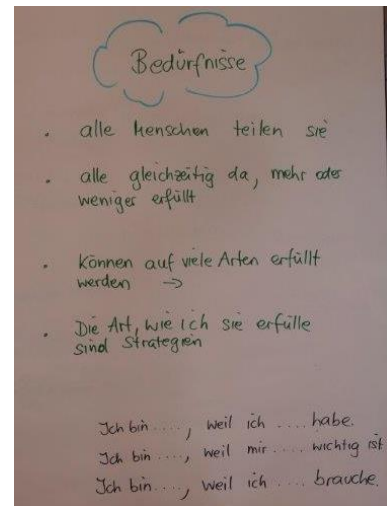 Bedürfnisse
• alle Menschen teilen sie
• alle gleichzeitig da, mehr oder
weniger erfüllt
• können auf viele Arten erfüllt
werden →
• Die Art, wie ich sie erfülle
sind Strategien
Ich bin ...., weil ich .... habe.
Ich bin ...., weil mir .... wichtig ist
Ich bin ...., weil ich .... brauche.